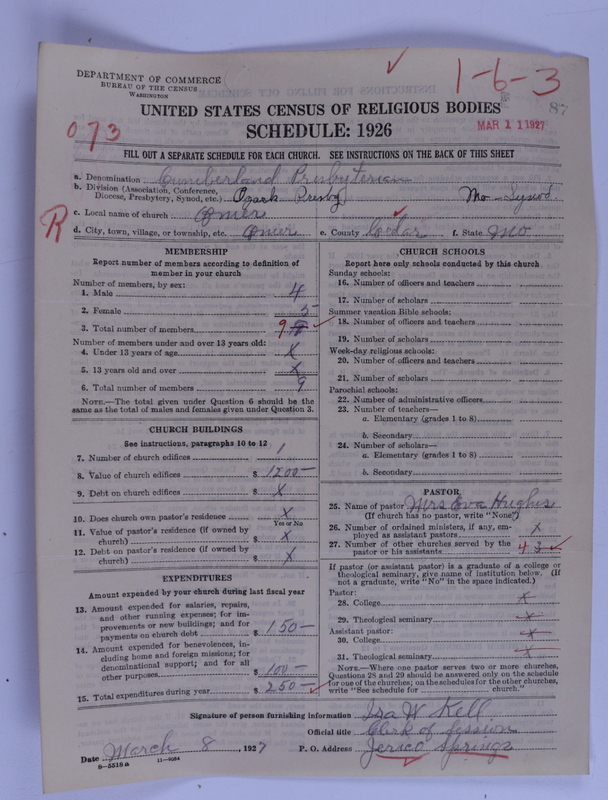 DEPARTMENT OF COMMERCE
BUREAU OF THE CENSUS
WASHINGTON
1-6-3
87
UNITED STATES CENSUS OF RELIGIOUS BODIES
MAR 11 1927
073
SCHEDULE: 1926
FILL OUT A SEPARATE SCHEDULE FOR EACH CHURCH. SEE INSTRUCTIONS ON THE BACK OF THIS SHEET
a. Denomination Cumberland Presbyterian
b. Division (Association, Conference, Diocese, Presbytery, Synod, etc.) Ozark Presby) Mo-Synod.
R
c. Local name of church Omer
d. City, town, village, or township, etc. Omer e. County Cedar f. State Mo
MEMBERSHIP
Report number of members according to definition of
member in your church
Number of members, by sex:
1. Male 4
2. Female 5
3. Total number of members 9
Number of members under and over 13 years old:
4. Under 13 years of age X
5. 13 years old and over X
6. Total number of members 9
NOTE.—The total given under Question 6 should be the
same as the total of males and females given under Question 3.
CHURCH BUILDINGS
See instructions, paragraphs 10 to 12
7. Number of church edifices 1
8. Value of church edifices $ 1200-
9. Debt on church edifices $ X
10. Does church own pastor's residence X
Yes or No
11. Value of pastor's residence (if owned by
church) $ X
12. Debt on pastor's residence (if owned by
church) $ X
EXPENDITURES
Amount expended by your church during last fiscal year
13. Amount expended for salaries, repairs,
and other running expenses; for im-
provements or new buildings; and for
payments on church debt $ 150-
14. Amount expended for benevolences, in-
cluding home and foreign missions; for
denominational support; and for all
other purposes $ 100-
15. Total expenditures during year $ 250-
CHURCH SCHOOLS
Report here only schools conducted by this church
Sunday schools:
16. Number of officers and teachers
17. Number of scholars
Summer vacation Bible schools:
18. Number of officers and teachers
19. Number of scholars
Week-day religious schools:
20. Number of officers and teachers
21. Number of scholars
Parochial schools:
22. Number of administrative officers
23. Number of teachers—
a. Elementary (grades 1 to 8)
b. Secondary
24. Number of scholars—
a. Elementary (grades 1 to 8)
b. Secondary
PASTOR
25. Name of pastor Mrs Eva Hughs
(If church has no pastor, write "None")
26. Number of ordained ministers, if any, em-
ployed as assistant pastors X
27. Number of other churches served by the
pastor or his assistants 4 3
If pastor (or assistant pastor) is a graduate of a college or
theological seminary, give name of institution below. (If
not a graduate, write "No" in the space indicated.)
Pastor:
28. College X
29. Theological seminary X
Assistant pastor:
30. College X
31. Theological seminary X
NOTE.—Where one pastor serves two or more churches,
Questions 28 and 29 should be answered only on the schedule
for one of the churches; on the schedules for the other churches,
write "See schedule for church."
Signature of person furnishing information Ira W Kell
Official title Clerk of Session
Date March 8, 1927 P. O. Address Jerico Springs
8-5518a 11-9084